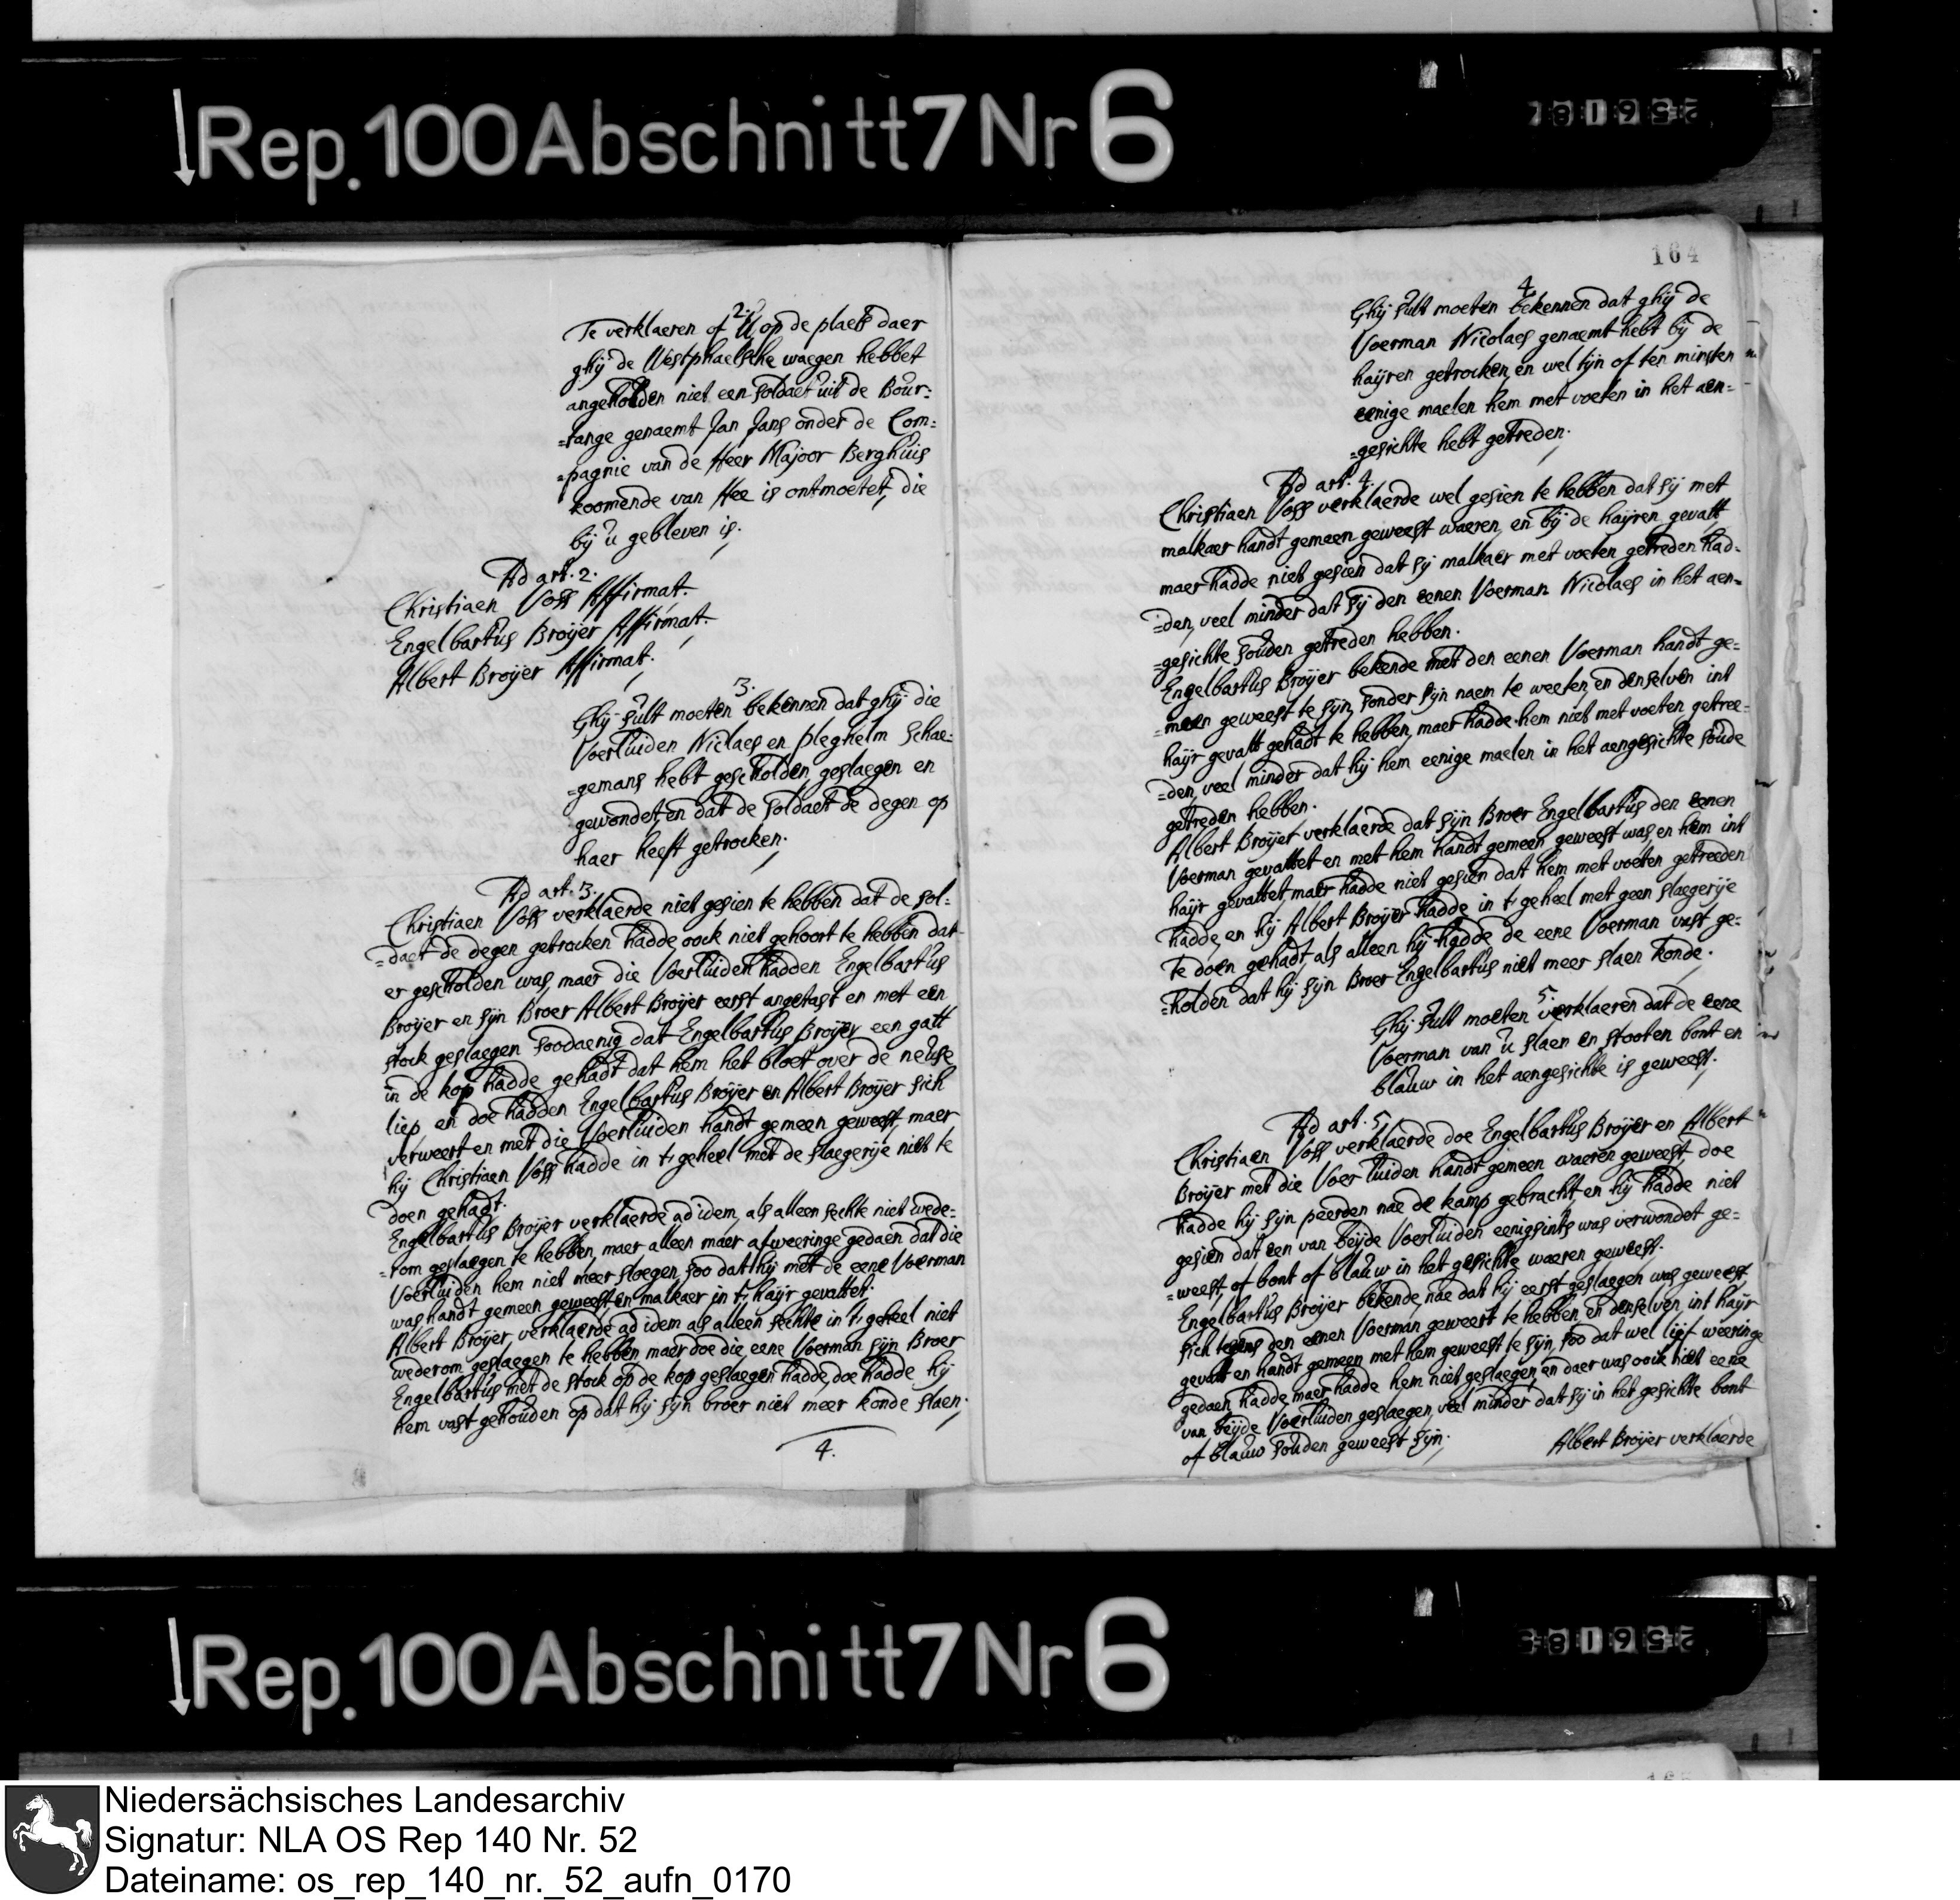 Rep. 100 Abschnitt 7 Nr 6
2.
Te verklaeren of U op de plaets daer
ghij de Westphaelsche waegen hebbet
angeholden niet een soldaet uit de Bour=
=tange genaemt Jan Jans onder de Com=
=pagnie van de Heer Majoor Berghuis
koomende van Hee is ontmoetet, die
bij u gebleven is.
Ad art. 2.
Christiaen Voss Affirmat.
Engelbartus Broijer Affirmat.
Albert Broijer Affirmat.
3.
Ghij sult moeten bekennen dat ghij die
Voerluiden Niclaes en pleghelm Schae=
=gemans hebt gescholden, geslaegen en
gewondet, en dat de soldaet de degen op
haer heeft getrocken.
Ad art. 3.
Christiaen Voss verklaerde niet gesien te hebben dat de sol=
=daet de degen getrocken hadde, oock niet gehoort te hebben dat
er gescholden was, maer die Voerluiden hadden Engelbartus
Broijer en sijn Broer Albert Broijer eerst angetast en met een
stock geslaegen soodaenig dat Engelbartus Broijer een gatt
in de kop hadde gehadt dat hem het bloet over de neuse
liep en doe hadden Engelbartus Broijer en Albert Broijer sich
verweert en met die Voerluiden handt gemeen geweest, maer
hij Christiaen Voss hadde in t' geheel met de slaegerije niet te
doen gehadt.
Engelbartus Broijer verklaerde ad idem, als alleen sechte niet wede=
=rom geslaegen te hebben, maer alleen maer afweeringe gedaen dat die
Voerluiden hem niet meer sloegen, soo dat hij met de eene Voerman
was handt gemeen geweest, en malkaer in t' haijr gevattet.
Albert Broijer, verklaerde ad idem als alleen sechte in t' geheel niet
wederom geslaegen te hebben maer doe die eene Voerman sijn Broer
Engelbartus met de stock op de kop geslaegen hadde, doe hadde hij
hem vast gehouden op dat hij sijn broer niet meer konde slaen.
4.
164
4.
Ghij sult moeten bekennen dat ghij de
Voerman Nicolaes genaemt hebt bij de
haijren getrocken, en wel tijn of ten minsten
eenige maelen hem met voeten in het aen=
=gesichte hebt getreden.
Ad art. 4.
Christiaen Voss verklaerde wel gesien te hebben dat sij met
malkaer handt gemeen geweest waeren, en bij de haijren gevatt
maer hadde niet gesien dat sij malkaer met voeten getreden had=
=den, veel minder dat sij den eenen Voerman Nicolaes in het aen=
=gesichte souden getreden hebben.
Engelbartus Broijer bekende met den eenen Voerman handt ge=
=meen geweest te sijn, sonder sijn naem te weeten, en denselven int
haijr gevatt gehadt te hebben, maer hadde hem niet met voeten getree=
=den, veel minder dat hij hem eenige maelen in het aengesichte soude
getreden hebben.
Albert Broijer verklaerde dat sijn Broer Engelbartus den eenen
Voerman gevattet en met hem handt gemeen geweest was, en hem int
haijr gevattet, maer hadde niet gesien dat hem met voeten getreeden
hadde, en hij Albert Broijer hadde in t' geheel met geen slaegerije
te doen gehadt, als alleen hij hadde de eene Voerman vast ge=
=holden dat hij sijn Broer Engelbartus niet meer slaen konde.
5.
Ghij sult moeten verklaeren dat de eene
Voerman van u slaen en stooten bont en
blauw in het aengesichte is geweest.
Ad art. 5.
Christiaen Voss verklaerde doe Engelbartus Broijer en Albert
Broijer met die Voerluiden handt gemeen waeren geweest, doe
hadde hij sijn peerden nae de kamp gebracht, en hij hadde niet
gesien dat een van beijde Voerluiden eenigsints was verwondet ge=
=weest, of bont of blauw in het gesichte waeren geweest.
Engelbartus Broijer bekende, nae dat hij eerst geslaegen was geweest,
sich tegens den eenen Voerman geweert te hebben, en denselven int haijr
gevatt en handt gemeen met hem geweest te sijn, soo dat wel lijf weeringe
gedaen hadde, maer hadde hem niet geslaegen, en daer was oock niet eene
van beijde Voerluiden geslaegen, veel minder dat sij in het gesichte bont
of blauw souden geweest sijn.
Albert Broijer verklaerde
Rep. 100 Abschnitt 7 Nr 6
Niedersächsisches Landesarchiv
Signatur: NLA OS Rep 140 Nr. 52
Dateiname: os_rep_140_nr._52_aufn_0170